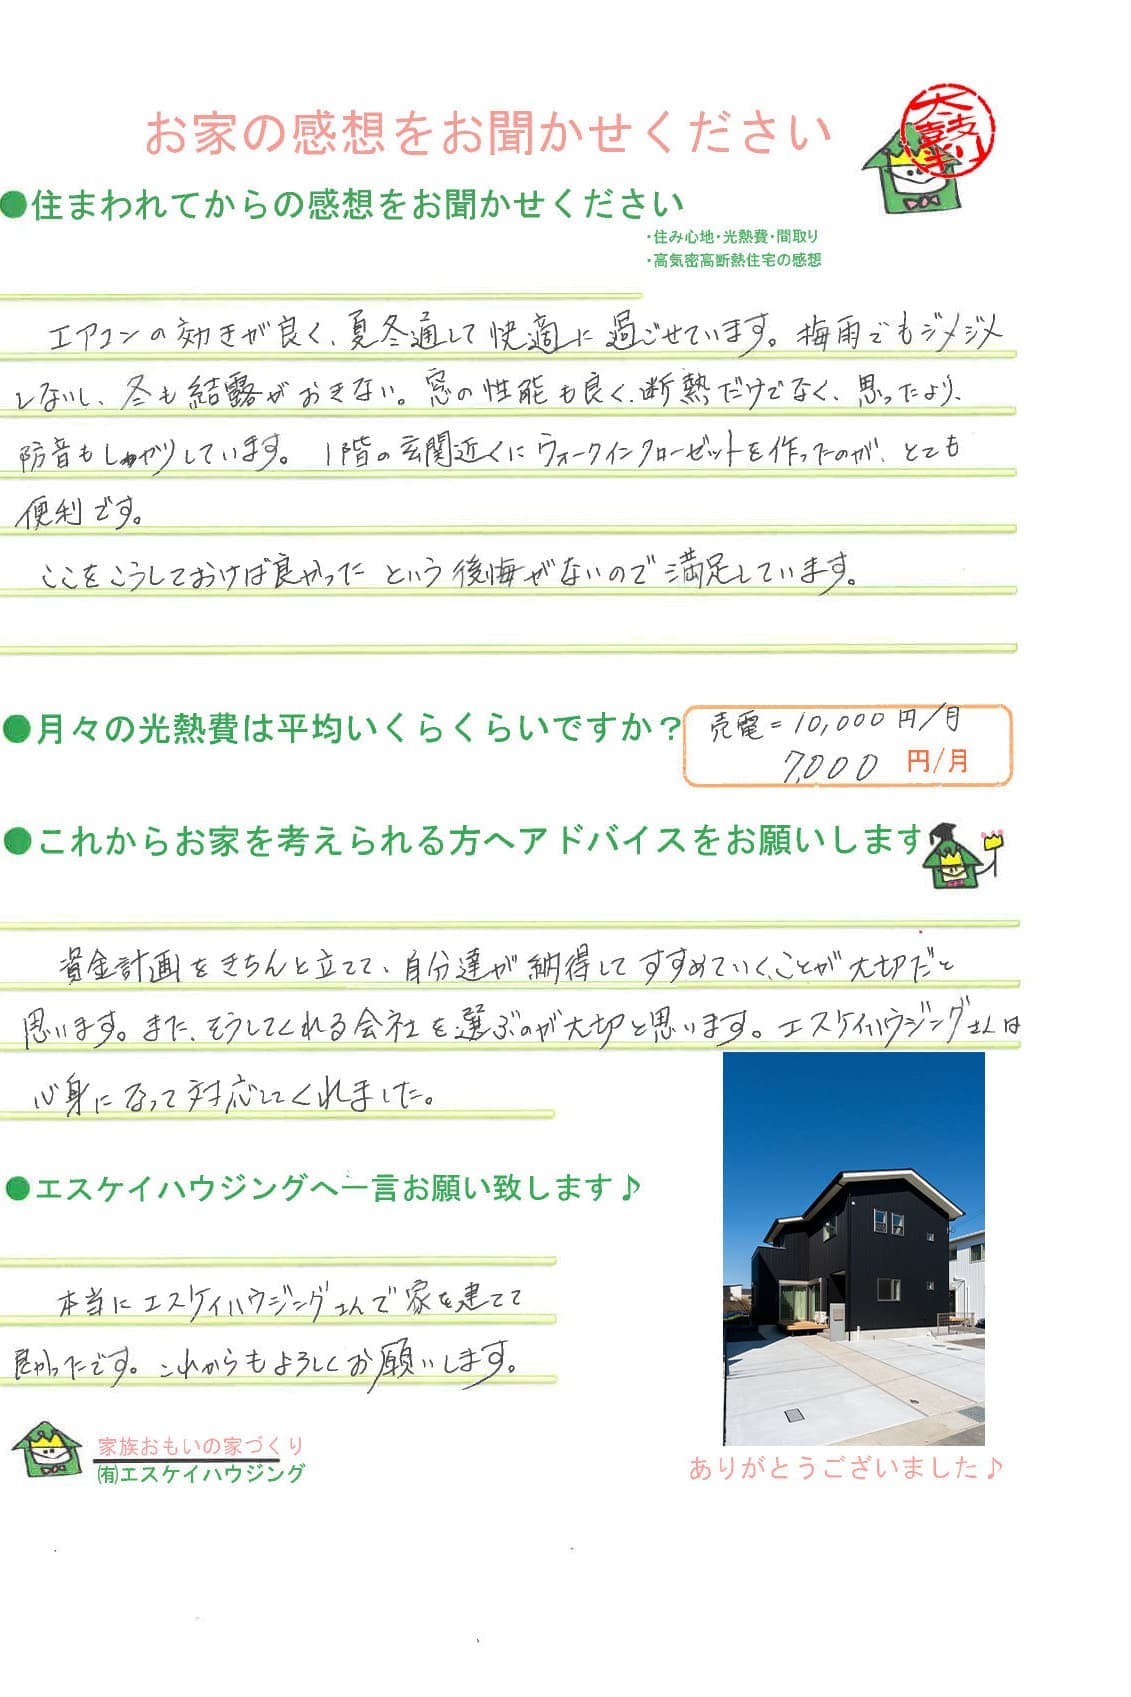 お家の感想をお聞かせください
●住まわれてからの感想をお聞かせください
・住み心地・光熱費・間取り
・高気密高断熱住宅の感想
エアコンの効きが良く、夏冬通して快適に過ごせています。梅雨でもジメジメ
しないし、冬も結露がおきない。窓の性能も良く、断熱だけでなく、思ったより、
防音もしっかりしています。1階の玄関近くにウォークインクローゼットを作ったのが、とても
便利です。
ここをこうしておけば良かったという後悔がないので満足しています。
●月々の光熱費は平均いくらくらいですか?
売電=10,000円/月
7,000 円/月
●これからお家を考えられる方へアドバイスをお願いします
資金計画をきちんと立てて、自分達が納得してすすめていくことが大切だと
思います。また、そうしてくれる会社を選ぶのが大切と思います。エスケイハウジングさんは
心身になって対応してくれました。
●エスケイハウジングへ一言お願い致します♪
本当にエスケイハウジングさんで家を建てて
良かったです。これからもよろしくお願いします。
家族おもいの家づくり
㈲エスケイハウジング
ありがとうございました♪